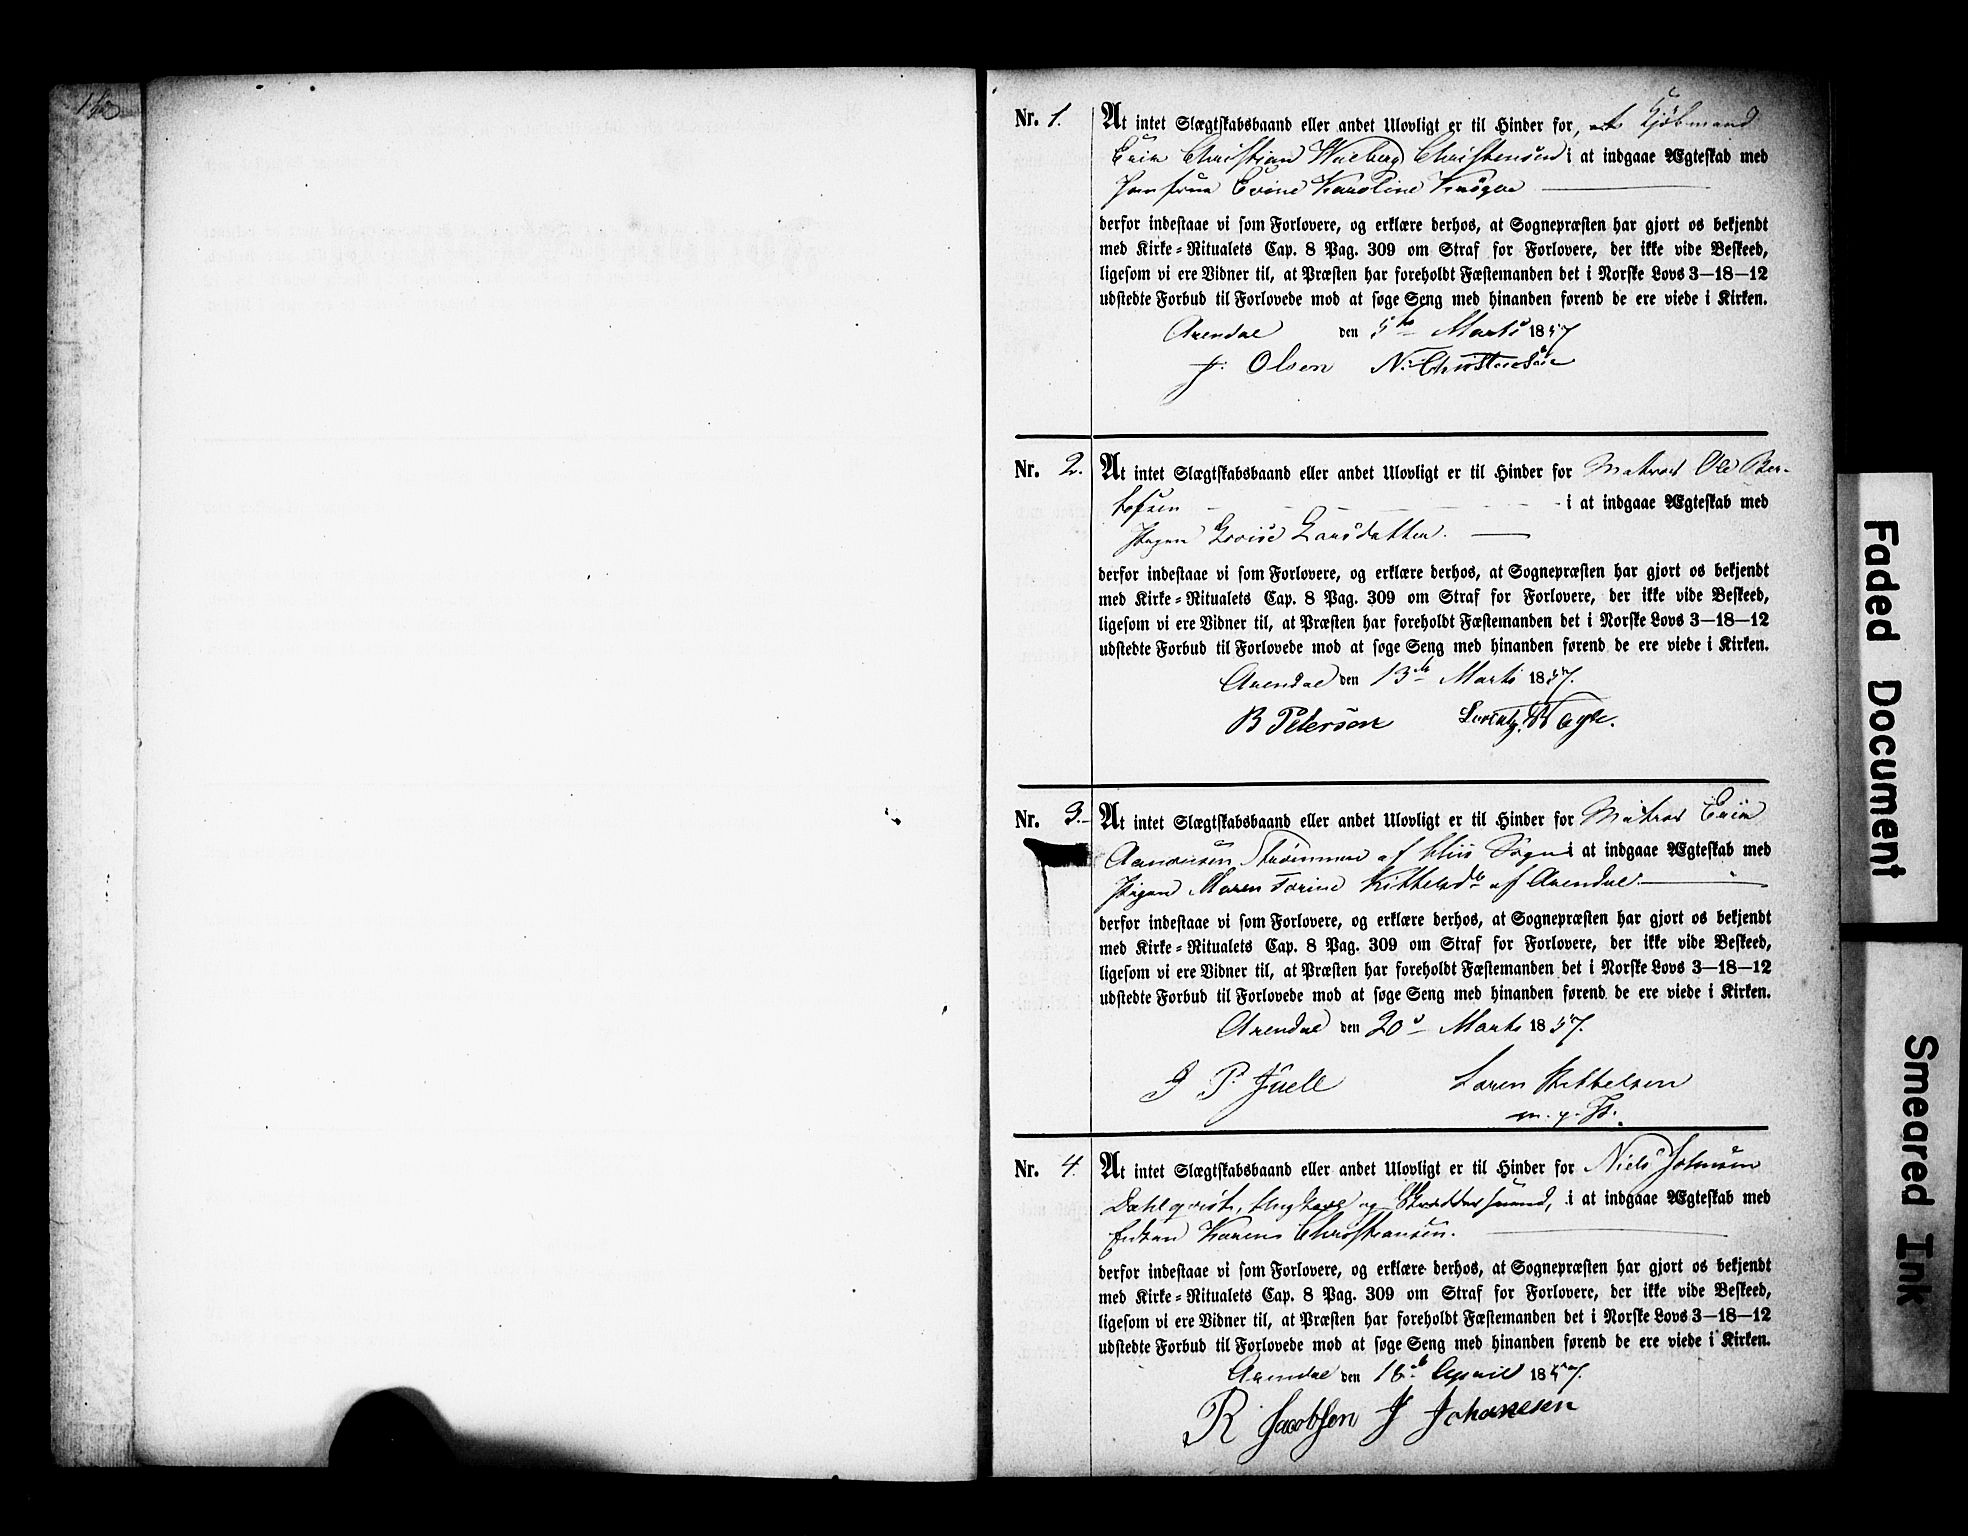 Nr. 1. At intet Slægtskabsbaand eller andet Ulovligt er til Hinder for, at Kjöbmand
Christian Christensen i at indgaae Ægteskab med
Jomfrue Karoline
derfor indestaae vi som Forlovere, og erklære derhos, at Sognepræsten har gjort os bekjendt
med Kirke=Ritualets Cap. 8 Pag. 309 om Straf for Forlovere, der ikke vide Beskeed,
ligesom vi ere Vidner til, at Præsten har foreholdt Fæstemanden det i Norske Lovs 3—18—12
udstedte Forbud til Forlovede mod at søge Seng med hinanden førend de ere viede i Kirken.
Arendal den 5te Marts 1857
J. Olsen N. Christensen
Nr. 2. At intet Slægtskabsbaand eller andet Ulovligt er til Hinder for Matros Ole Ber-
tofsen i at indgaae Ægteskab med
Pigen Lovise Larsdatter.
derfor indestaae vi som Forlovere, og erklære derhos, at Sognepræsten har gjort os bekjendt
med Kirke=Ritualets Cap. 8 Pag. 309 om Straf for Forlovere, der ikke vide Beskeed,
ligesom vi ere Vidner til, at Præsten har foreholdt Fæstemanden det i Norske Lovs 3—18—12
udstedte Forbud til Forlovede mod at søge Seng med hinanden førend de ere viede i Kirken.
Arendal den 13de Marts 1857.
B Petersen Lorentz
Nr. 3. At intet Slægtskabsbaand eller andet Ulovligt er til Hinder for Matros
Aanonsen Strömmen af Sogn i at indgaae Ægteskab med
Pigen Maren Torine Kittelsd. af Arendal.
derfor indestaae vi som Forlovere, og erklære derhos, at Sognepræsten har gjort os bekjendt
med Kirke=Ritualets Cap. 8 Pag. 309 om Straf for Forlovere, der ikke vide Beskeed,
ligesom vi ere Vidner til, at Præsten har foreholdt Fæstemanden det i Norske Lovs 3—18—12
udstedte Forbud til Forlovede mod at søge Seng med hinanden førend de ere viede i Kirken.
Arendal den 20d Marts 1857.
J P. Juell Soren Kittelsen
m. p. P.
Nr. 4. At intet Slægtskabsbaand eller andet Ulovligt er til Hinder for Niels Johnsen
Dahlqvist, Ungkarl og Skræddersvend, i at indgaae Ægteskab med
Enken Karen Christiansen.
derfor indestaae vi som Forlovere, og erklære derhos, at Sognepræsten har gjort os bekjendt
med Kirke=Ritualets Cap. 8 Pag. 309 om Straf for Forlovere, der ikke vide Beskeed,
ligesom vi ere Vidner til, at Præsten har foreholdt Fæstemanden det i Norske Lovs 3—18—12
udstedte Forbud til Forlovede mod at søge Seng med hinanden førend de ere viede i Kirken.
Arendal den April 1857.
R Jacobsen J Johansen
Faded Document
Smeared Ink